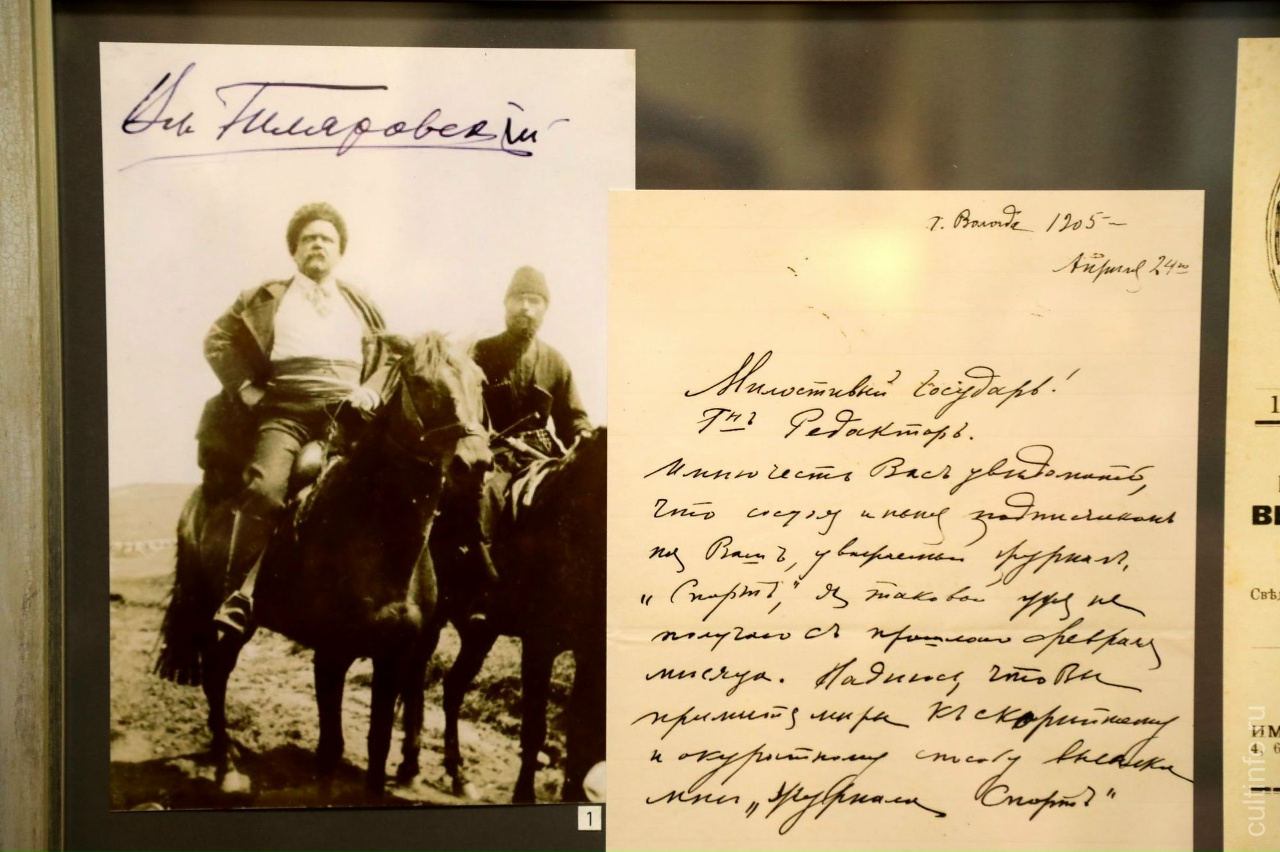 Вл Гиляровский
г. Вологда 1905 –
Апреля 24го
Милостивый Государь!
Гнъ Редакторъ.
Имѣю честь Васъ увѣдомить,
что состоя и нынѣ подписчикомъ
на Вашъ, уважаемый журналъ,
„Спортъ,“ я таковой уже не
получаю съ прошлаго февраля
мѣсяца. Надѣюсь, что Вы
примите мѣры къ скорѣйшему
и аккуратному способу высылки
мнѣ „Журнала Спортъ“
1
1
ВЕ
Свѣд
ИМ
4, 6
cultinfo.ru